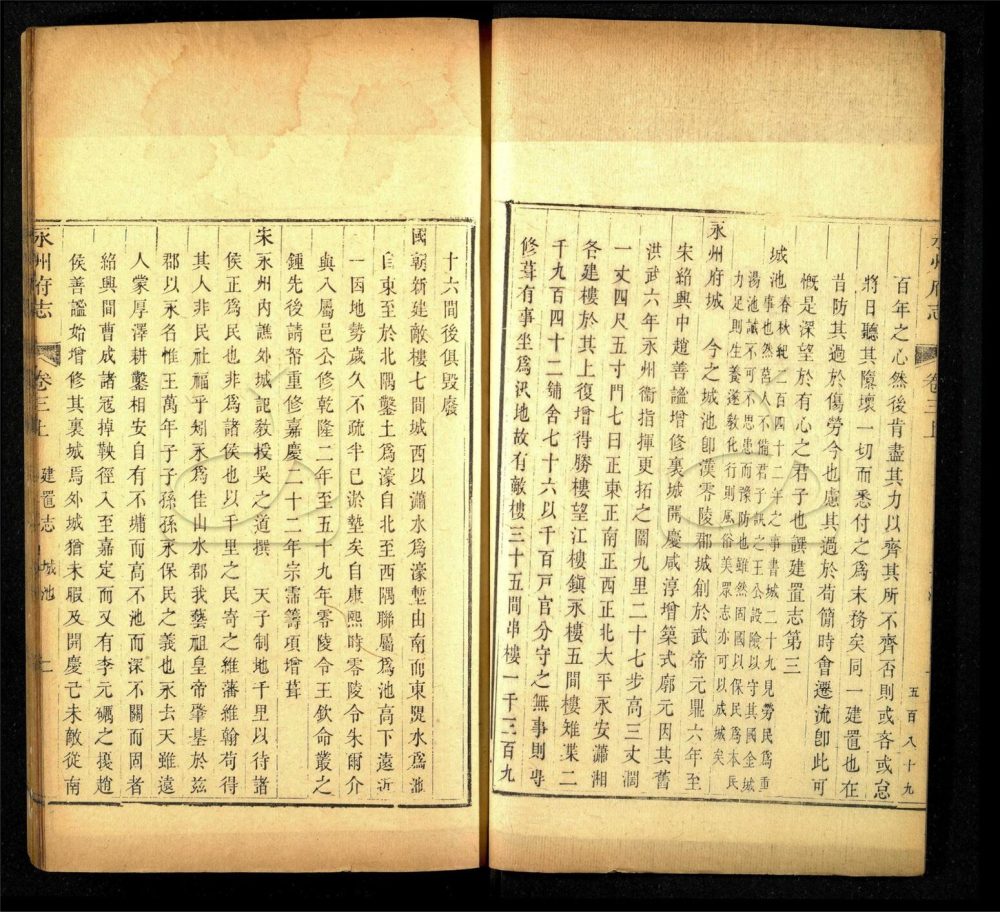 永州府志
卷三上
五百八十九
百年之心然後肯盡其力以齊其所不齊否則或吝或怠
將日聽其隳壞一切而悉付之為末務矣同一建置也在
昔防其過於傷勞今也慮其過於苟簡時會遷流卽此可
慨是深望於有心之君子也譔建置志第三
城池春秋紀二百四十二年之事書城二十九見勞民爲重
事也然莒人不備君子譏之王公設險以守其國金城
湯池誠不可不思患而豫防也雖然固國以保民爲本民
力足則生養遂敎化行則風俗美眾志亦可以成城矣
永州府城　今之城池卽漢零陵郡城創於武帝元鼎六年至
宋紹興中趙善謐增修裏城開慶咸淳增築式廓元因其舊
洪武六年永州衞指揮更拓之闊九里二十七步高三丈濶
一丈四尺五寸門七曰正東正南正西正北大平永安瀟湘
各建樓於其上復增得勝樓望江樓鎭永樓五間樓雉堞二
千九百四十二舖舍七十六以千百戸官分守之無事則專
修葺有事坐爲汛地故有敵樓三十五間串樓一千三百九
十六間後俱毀廢
國朝新建敵樓七間城西以瀟水爲濠塹由南而東畟水爲池
自東至於北隅鑿土爲濠自北至西隅聯屬爲池高下遠近
一因地勢歲久不疏半已淤墊矣自康熙時零陵令朱爾介
與八屬邑公修乾隆二年至五十九年零陵令王欽命叢之
鍾先後請帑重修嘉慶二十二年宗霈籌項增葺
宋永州內譙外城記敎授吳之道撰　天子制地千里以待諸
侯正爲民也非爲諸侯也以千里之民寄之維藩維翰苟得
其人非民社福乎矧永爲佳山水郡我藝祖皇帝肇基於兹
郡以永名惟王萬年子子孫孫永保民之義也永去天雖遠
人蒙厚澤耕鑿相安自有不墉而高不池而深不關而固者
紹興間曹成諸冦掉鞅徑入至嘉定而又有李元礪之擾趙
侯善謐始增修其裏城焉外城猶未暇及開慶己未敵從南
永州府志
卷三上
建置志
城池
二